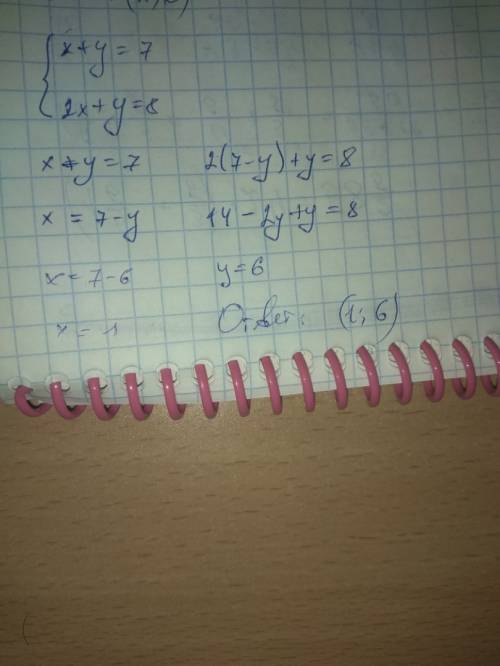 x+y=7
2x+y=8
x+y=7 2(7-y)+y=8
x=7-y 14-2y+y=8
x=7-6 y=6
x=1 Ответ: (1; 6)